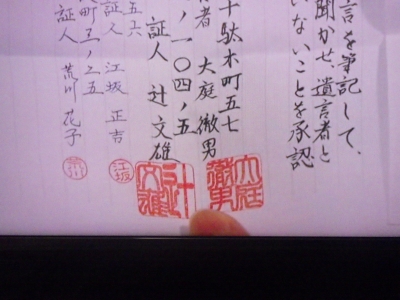 言を筆記して、
聞かせ、遺言者と
いないことを承認
十駄木町五七
者 大庭徹男
ノ一〇四ノ五
証人 辻文雄
五六
証人 江坂正吉
町五ノ二五
証人 荒川花子
大庭徹男
辻文雄
江坂
荒川